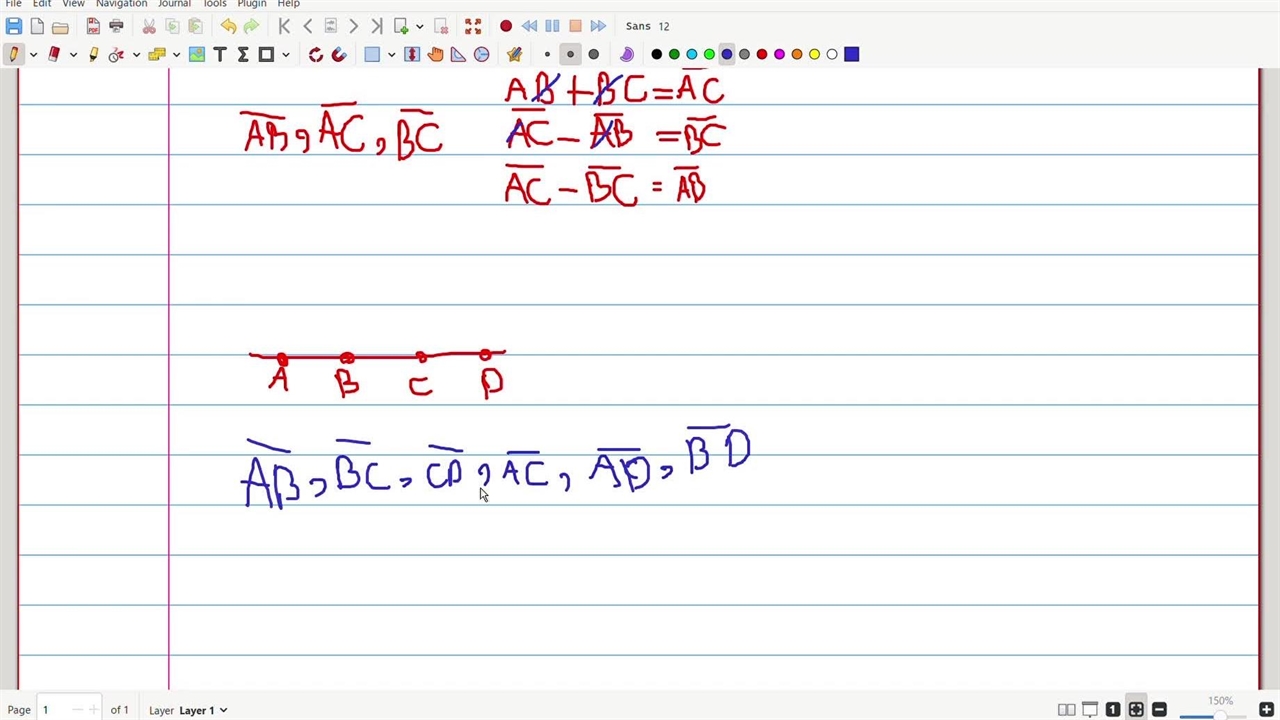 File Edit View Navigation Journal Tools Plugin Help
Sans 12
AB + BC = A̅C̅
A̅B̅, A̅C̅, B̅C̅
A̅C̅ - A̅B̅ = B̅C̅
A̅C̅ - B̅C̅ = A̅B̅
A B C D
A̅B̅, B̅C̅, C̅D̅, A̅C̅, A̅D̅, B̅D̅
Page 1 of 1 Layer Layer 1 1 150%